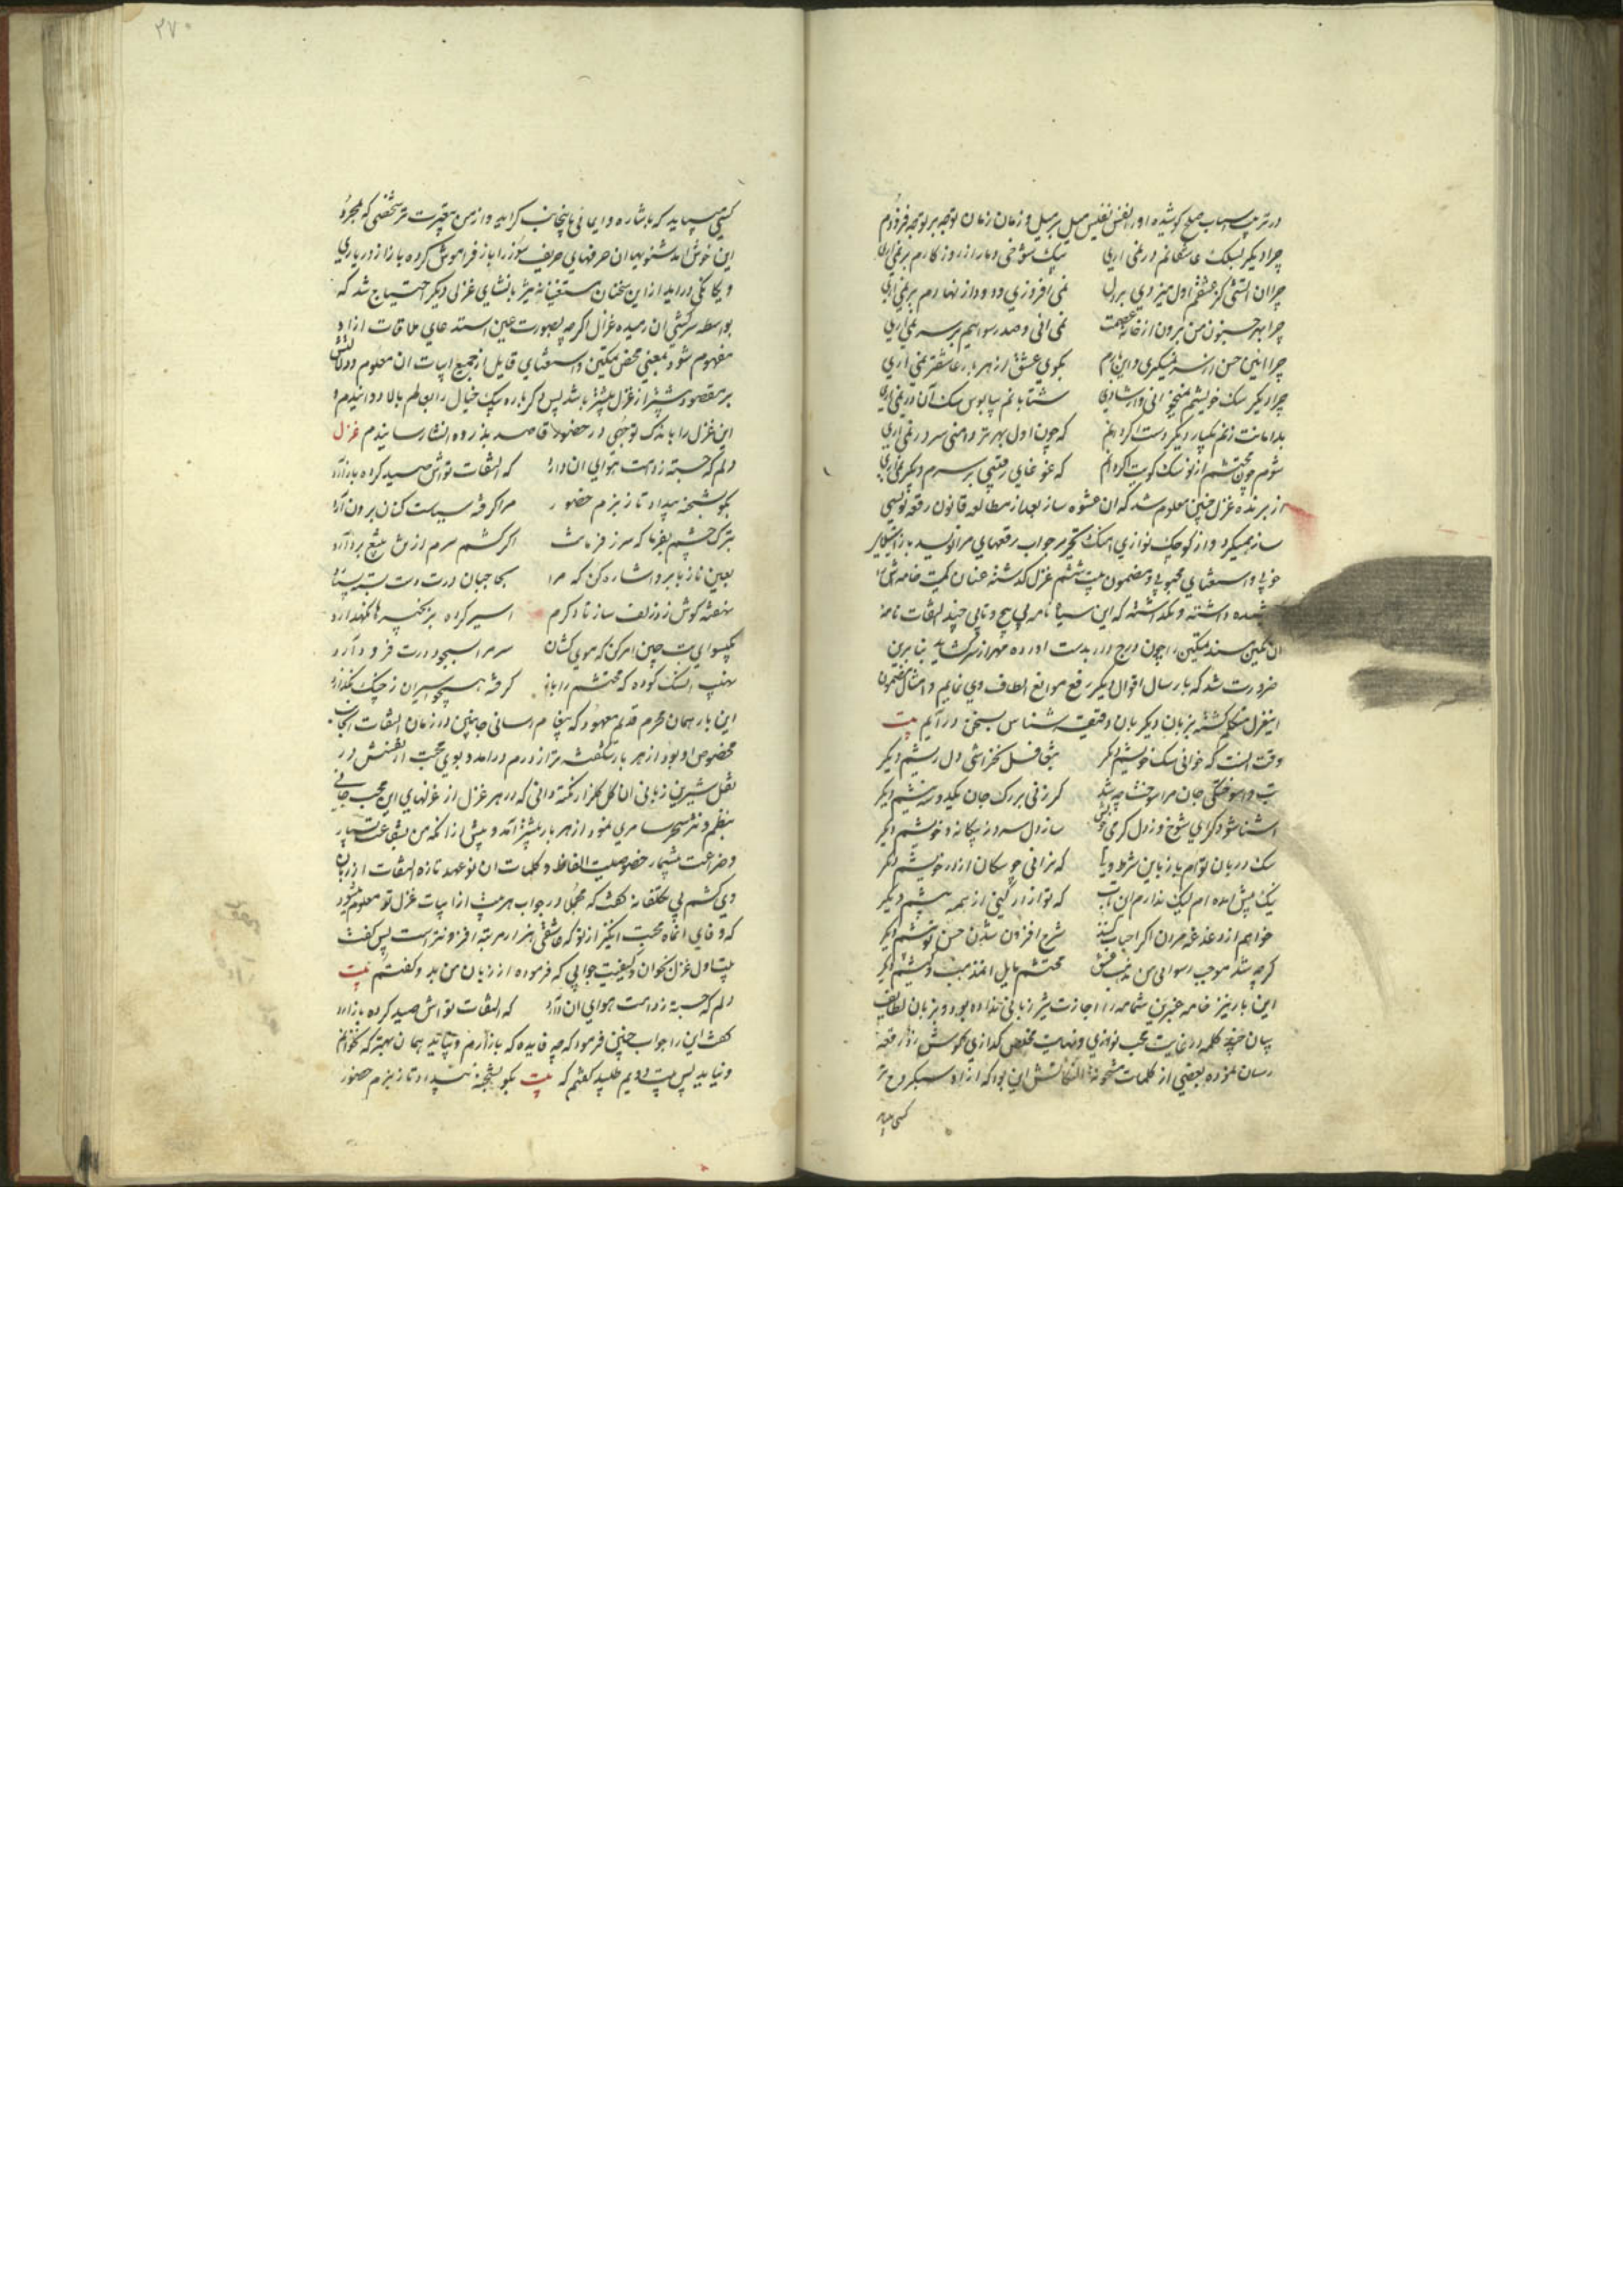 در ترتیب اسباب صلح کوشیده او را نفس نفیس میل بر میل و زمان زمان توجه بر توجه فزودم
چرا دیگر بسلک عاشقانم در نمی‌اری نیک شوخی دمار از روزکارم بر نمی‌اری
چرا ان اتشی کز عشقم اول میزدی بر دل نمی‌افروزی و دود از نهادم بر نمی‌اری
چرا بهر جنون من برون از خانه عصمت نمی‌ائی و صد رسوائیم بر سر نمی‌اری
بکوی عشق از هر بار عاشقتر نمی‌اری
چرا دیکر سک خویشم نمیخوانی و از شادی شتابانم بپابوس سک آن در نمی‌اری
بدامانت زنم یکبار دیکر دست اگر دانم که چون اول بهر تر دامنی سر در نمی‌اری
شوم چون محتشم از نو سک کویت اگر دانم که غوغای رقیبی بر سرم دیکر نمی‌اری
از برنده غزل چنین معلوم شد که ان عشوه ساز بعد از مطالعه قانون رقعه نویسی
ساز میکرد و از کوچک نوازی اهنک تحریر جواب رقعهای مرا نوید
خوبی و استغنای محبوبی و مضمون بیت ششم غزل کذشته عنان کمیت خامه‌اش را
کشیده داشته و نکذاشته که این سیاه نامه بی پیچ و تابی چند التفات نامه
ان نکین مسند تمکین را چون درج در بدست اورده مهر از سر کشاید بنابرین
ضرورت شد که بارسال اقوال دیکر رفع موانع الطاف وی نمایم و امثال مضمون
اینغزل متکلم کشته بزبان دیکر بان دقیقه شناس بسخن درآیم بیت
وقت انست که خوانی سک خویشم دکر بتغافل نخراشی دل ریشم دیکر
تب واسوختکی جان مرا سوخت چه شد کر زنی بر رک جان یکدو سه نیشم دیکر
اشنا شو دکر ای شوخ و ز دل کرمی خویش ساز دل سرد ز بیکانه و خویشم دیکر
سک دربان توام باز باین شرط و بیا که نرانی چو سکان از در خویشم دکر
نیک پیش امده‌ام لیک ندارم ان تاب که تو از دل کنی از همه پیشم دیکر
خواهم از دغدغه مردن اکر احباب کنند شرح افزون شدن حسن تو پیشم دیکر
کرچه شد موجب رسوایی من مذهب عشق محتشم مایل انمذهب و کیشم دیکر
این بار نیز خامه عنبرین شمامه را اجازت نثر زبانی نداده بود و بزبان لطایف
بیان خود چند کلمه در غایت محب نوازی و نهایت مخلص کدازی بکوش زد رقعه
رسان نموده بعضی از کلمات مشحونة النکاتش این بود که از اه سبکروح تر
کسی میباید
۲۷۰
کسی میباید که باشاره و ایمائی باینجانب کراید و از من بیغیرت تر شخصی که بمجرد
این خوش امد شنویها ان حرفهای حریف سوز را باز فراموش کرده باز از در یاری
و یکانکی دراید از این سخنان مستغنیانه نیز بانشای غزلی دیکر احتیاج شد که
بواسطه سرکشی ان رمیده غزال اکرچه بصورت عین استدعای ملاقات از او
مفهوم شود بمعنی محض تمکین و استغنای قایل از جمیع ابیات ان معلوم و دلالتش
بر مقصود بیشتر از غزل پیشتر باشد پس دکر باره پیک خیال را بعالم بالا دوانیدم و
این غزل را باندک توجهی در حضور قاصد بذروه انشا رسانیدم غزل
دلم که جسته ز دامت هوای ان دارد که التفات تواش صید کرده باز آرد
بکو بشحنه بیداد تا ز بزم حضور مرا کرفته سیاست کنان برون آرد
بترک چشم بفرما که سر ز فرمانت اکر کشم سرم از تن بتیغ بردارد
بعین ناز بابرو اشاره کن که مرا بحاجبان درت دست بسته بسپارد
نهفته کوش زد زلف ساز تا دکرم اسیر کرده بزنجیرها نکهدارد
بکیسوای بت چین امر کن که موی کشان سر مرا بسجود درت فرود آرد
نهیب اتشک کو ده که محتشم را باز کرفته همچو اسیران ز چنک نکذارد
این بار همان محرم قدیم معهود که پیغام رسانی جانبین در زمان التفات انجانب
مخصوص او بود از هر بار شکفته‌تر از درم درامد و بوی محبت از شنش در
نقل شیرین زبانی ان کل کلزار نکته دانی که در هر غزل از غزلهای این محب جانی
بنظم و نثر سحر سامری نمود از هر بار پیشتر آمد و پیش از انکه من بشفاعت بسیار
و ضراعت بیشمار خصوصیت الفاظ و کلمات ان نو عهد تازه التفات از زبان
وی کشم بی تکلفانه کفت که مجمل در جواب هر بیت از ابیات غزل تو معلوم میشود
که وفای انماه محبت انکیز از تو که عاشقی هزار مرتبه افزونتر است پس کفت
بیت اول غزل بخوان و کیفیت جوابی که فرموده از زبان من بد و کفتم بیت
دلم که جسته ز دامت هوای ان دارد که التفات تواش صید کرده باز ارد
کفت این را جواب چنین فرمود که چه فایده که باز ارم و نپاید همان بهتر که نخوانم
و نیاید پس بیت دویم طلبید کفتم که بیت بکو بشحنه بیداد تا ز بزم حضور